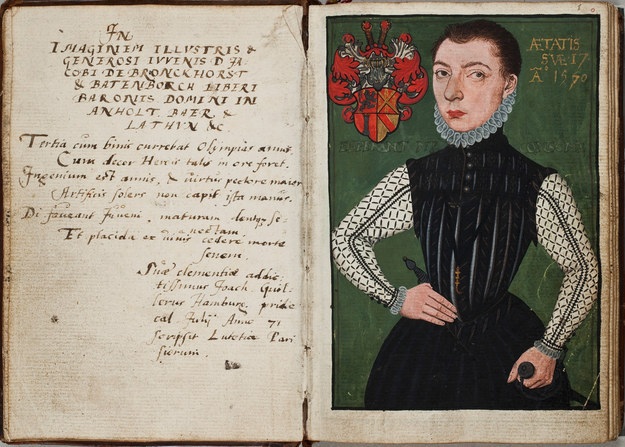 IN
IMAGINEM ILLUSTRIS &
GENEROSI IUVENIS D JA
COBI DE BRONCKHORST
& BATENBORCH LIBERI
BARONIS DOMINI IN
ANHOLT BAER &
LATHUN &C
Tertia cum binis currebat Olympias annis
Cum decor Herois talis in ore foret.
Ingenium est annis, & virtus pectore maior
Artificis solers non capit ista manus.
Di faveant juveni, maturam dent
senectam
Et placida ex
cedere morte
senem.
Suae clementiae addic
tissimus Joach. Guil
lerus Hamburg. pridie
cal. Julij Anno 71
scripsit Lutetiae Pari
siorum.
ÆTATIS
SVÆ 17
Aº 1570